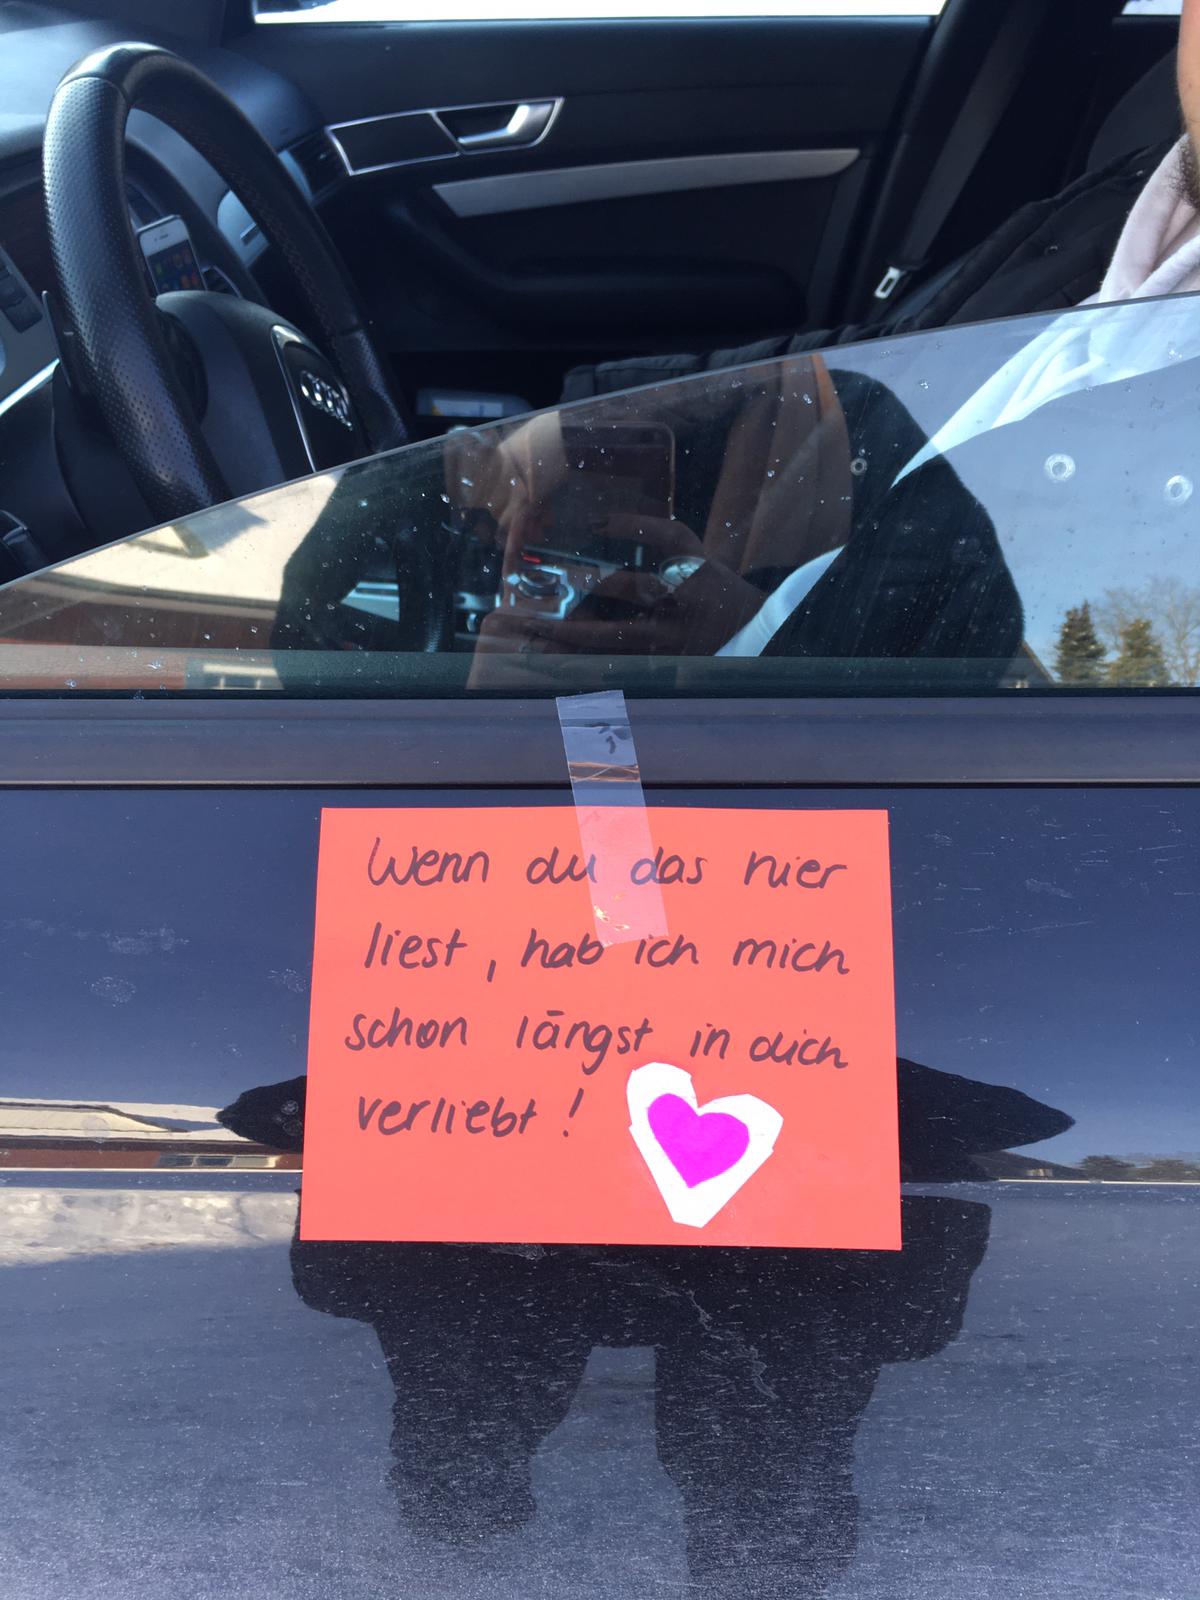 Wenn du das hier
liest, hab ich mich
schon längst in dich
verliebt!